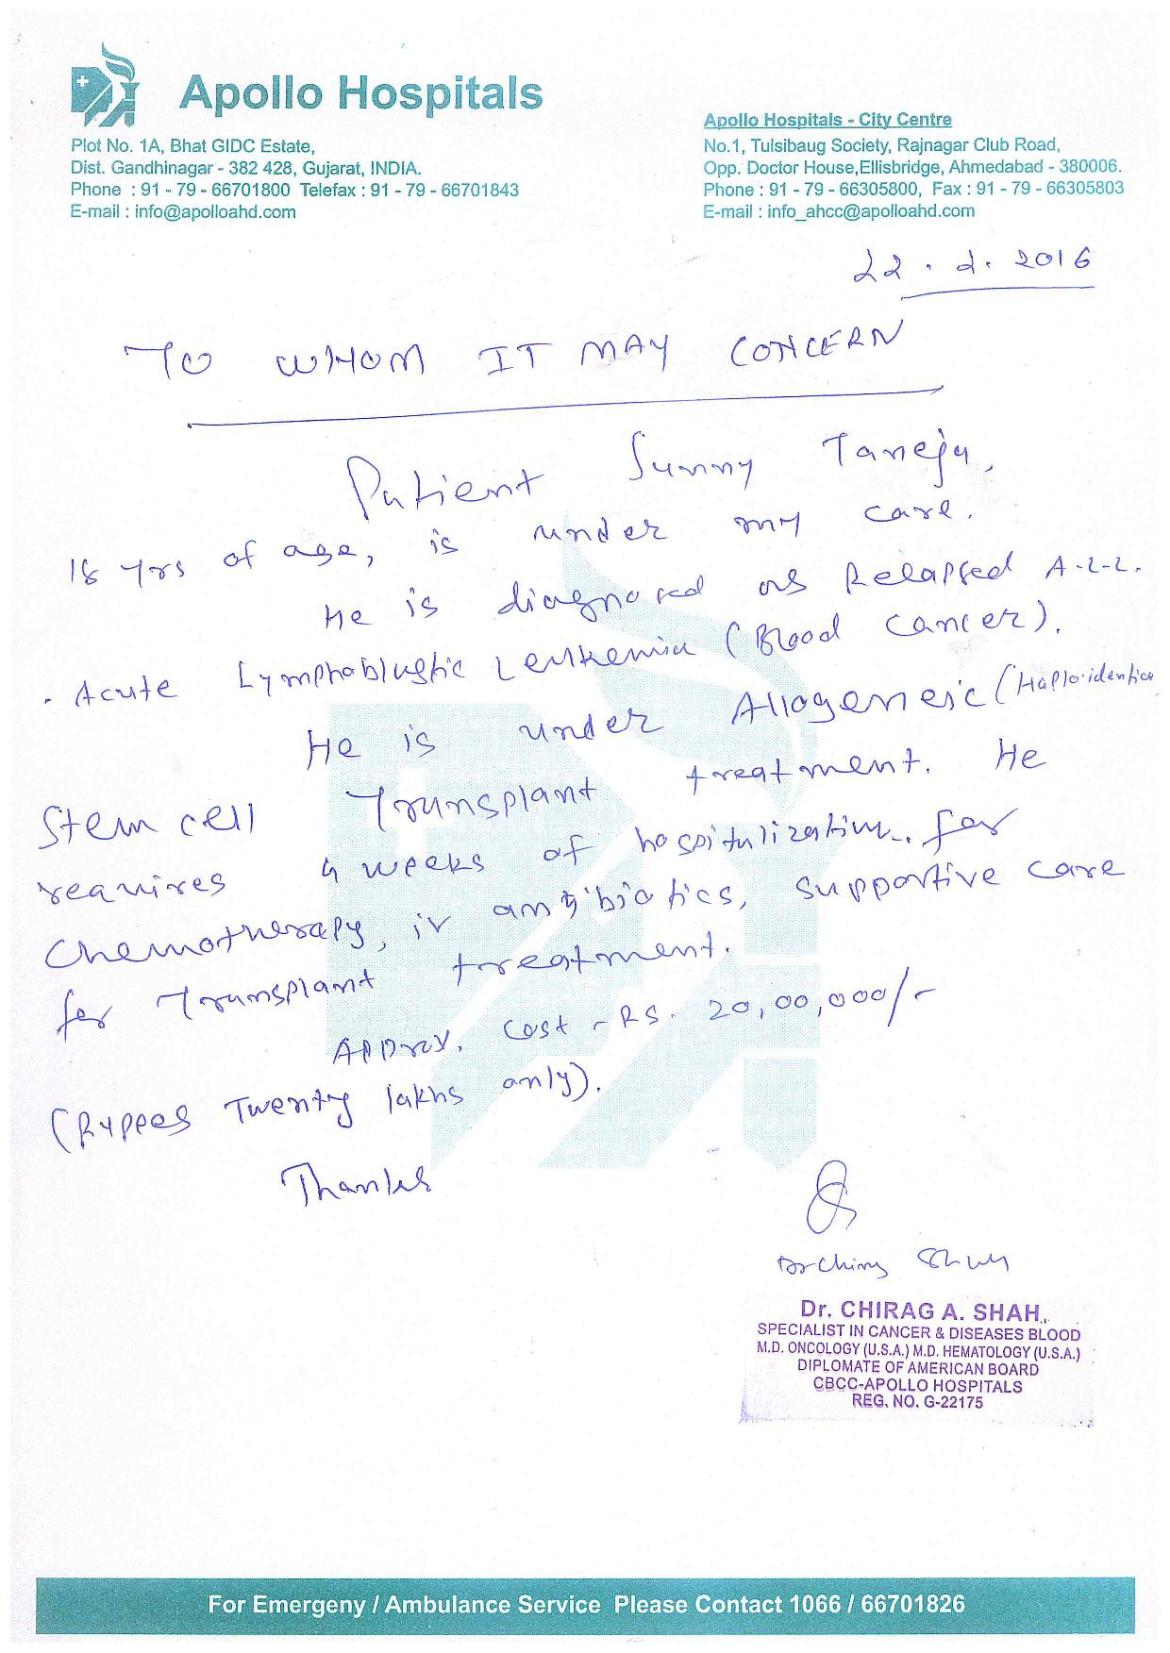 Apollo Hospitals
Plot No. 1A, Bhat GIDC Estate,
Dist. Gandhinagar - 382 428, Gujarat, INDIA.
Phone : 91 - 79 - 66701800 Telefax : 91 - 79 - 66701843
E-mail : info@apolloahd.com
Apollo Hospitals - City Centre
No.1, Tulsibaug Society, Rajnagar Club Road,
Opp. Doctor House,Ellisbridge, Ahmedabad - 380006.
Phone : 91 - 79 - 66305800, Fax : 91 - 79 - 66305803
E-mail : info_ahcc@apolloahd.com
22 . 2. 2016
TO WHOM IT MAY CONCERN
Patient Sunny Taneja,
18 yrs of age, is under my care.
He is diagnosed as Relapsed A-L-L.
. Acute Lymphoblastic Leukemia (Blood Cancer).
He is under Allogeneic (Haploidentica
Stem cell Transplant treatment. He
requires 4 weeks of hospitalization. for
Chemotherapy, iv antibiotics, supportive care
for Transplant treatment.
Approx. Cost - Rs. 20,00,000/-
(Rupees Twenty lakhs only).
Thanks
Dr Chirag Shah
Dr. CHIRAG A. SHAH
SPECIALIST IN CANCER & DISEASES BLOOD
M.D. ONCOLOGY (U.S.A.) M.D. HEMATOLOGY (U.S.A.)
DIPLOMATE OF AMERICAN BOARD
CBCC-APOLLO HOSPITALS
REG. NO. G-22175
For Emergeny / Ambulance Service Please Contact 1066 / 66701826